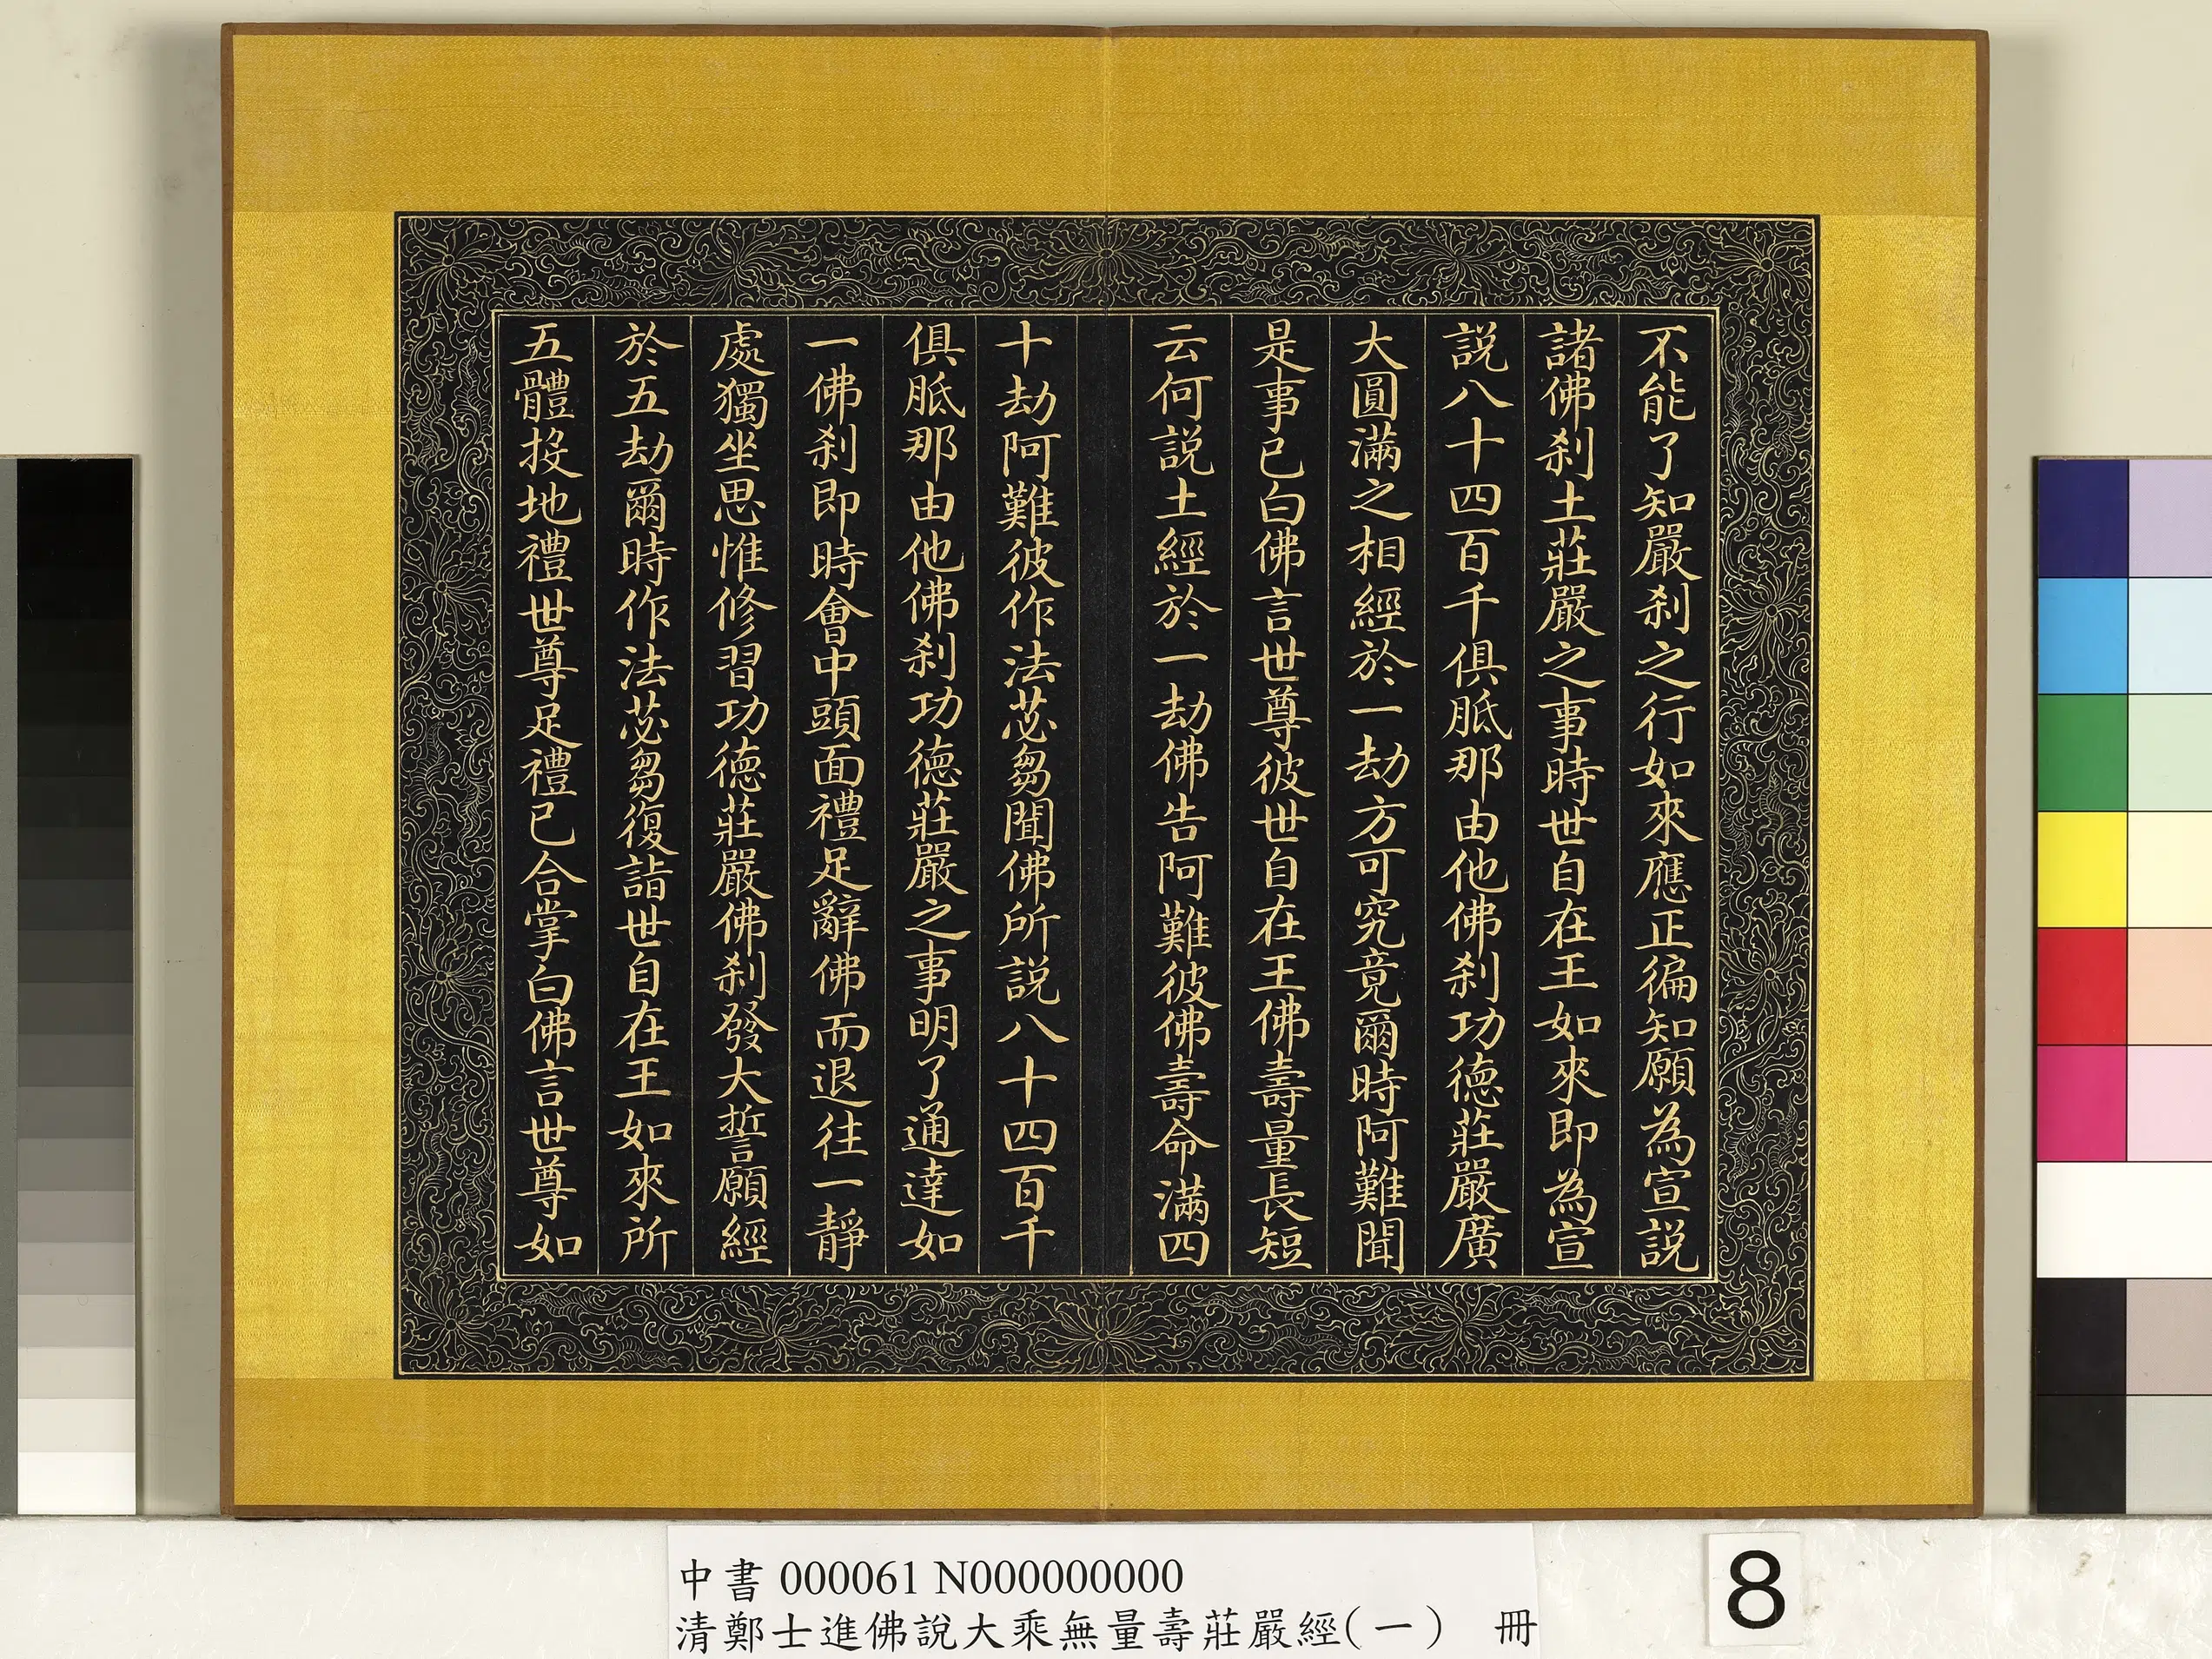 不能了知嚴刹之行如來應正徧知願為宣説
諸佛刹土莊嚴之事時世自在王如來即為宣
説八十四百千俱胝那由他佛刹功德莊嚴廣
大圓滿之相經於一劫方可究竟爾時阿難聞
是事已白佛言世尊彼世自在王佛壽量長短
云何説土經於一劫佛告阿難彼佛壽命滿四
十劫阿難彼作法苾芻聞佛所説八十四百千
俱胝那由他佛刹功德莊嚴之事明了通達如
一佛刹即時會中頭面禮足辭佛而退往一靜
處獨坐思惟修習功德莊嚴佛刹發大誓願經
於五劫爾時作法苾芻復詣世自在王如來所
五體投地禮世尊足禮已合掌白佛言世尊如
中書 000061 N000000000
清鄭士進佛說大乘無量壽莊嚴經(一) 冊
8